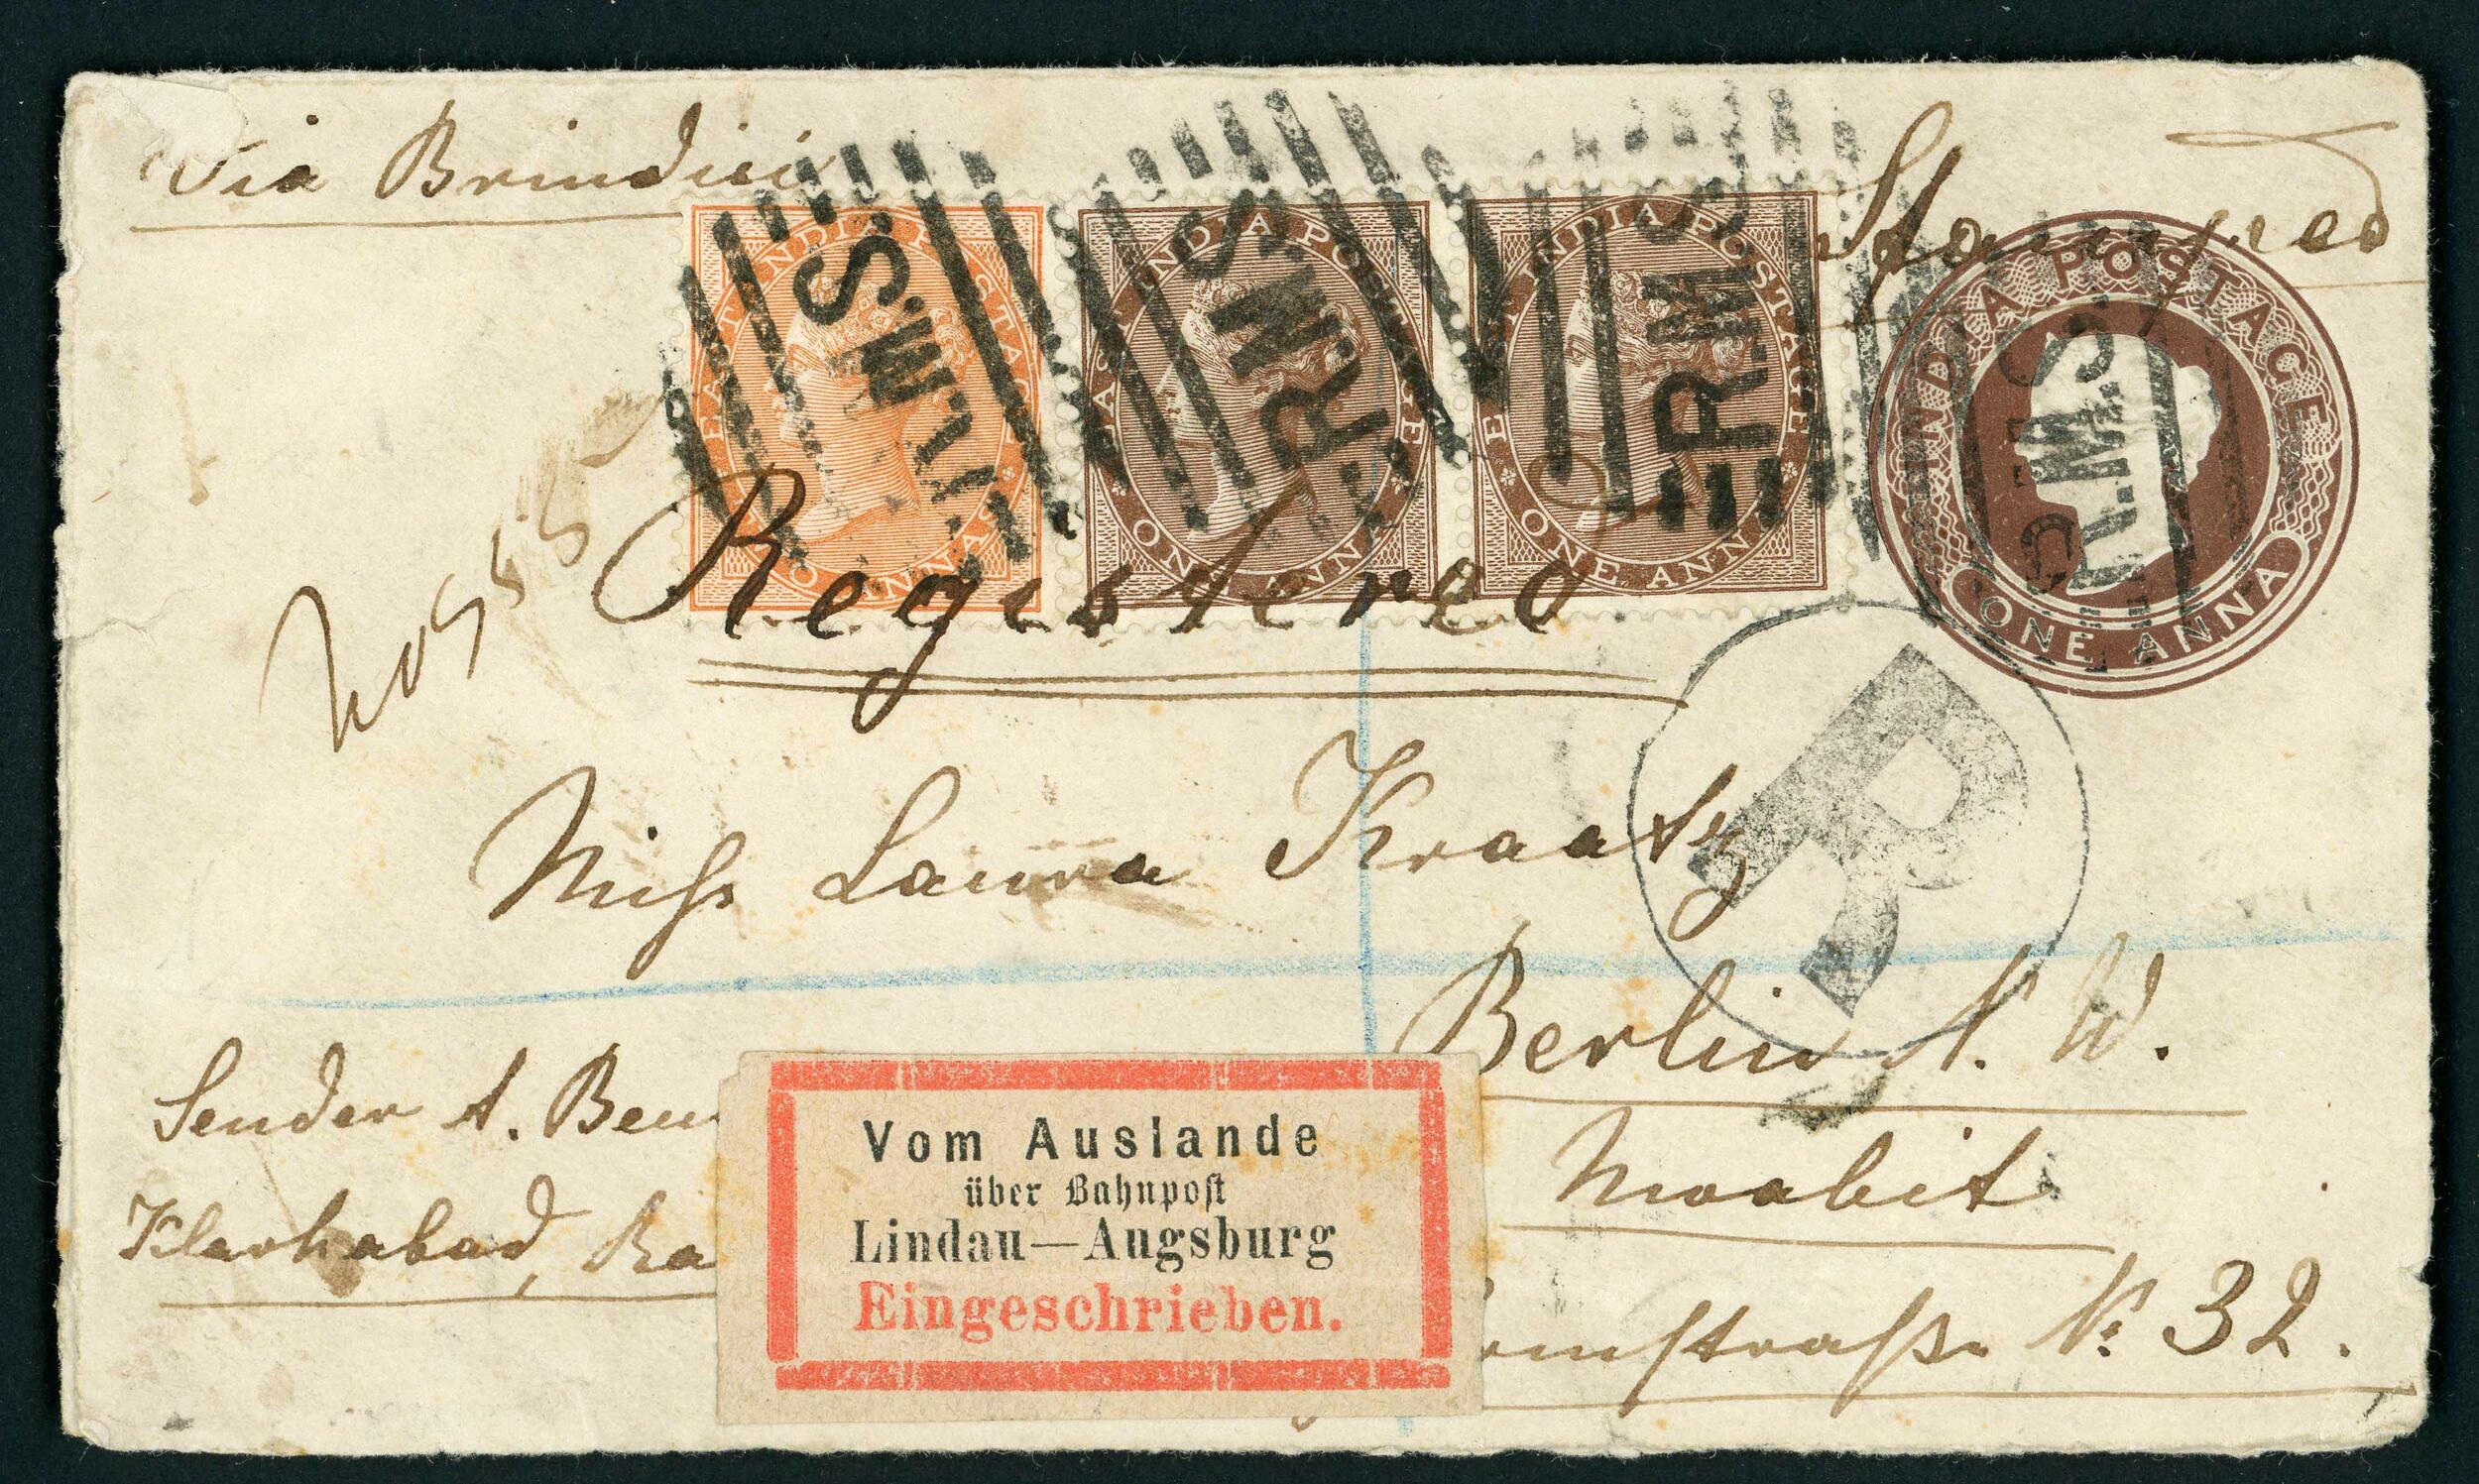 Via Brindisi
Stamped
EAST INDIA POSTAGE
TWO ANNAS
R.M.S.
EAST INDIA POSTAGE
ONE ANNA
R.M.S.
EAST INDIA POSTAGE
ONE ANNA
R.M.S.
INDIA POSTAGE
ONE ANNA
R.M.S.
Registered
R
Miss Laura Kraatz
Berlin N. W.
Moabit
Sender A. Ben
Klarkabad, Ra
Vom Auslande
über Bahnpost
Lindau—Augsburg
Eingeschrieben.
straße No 32.